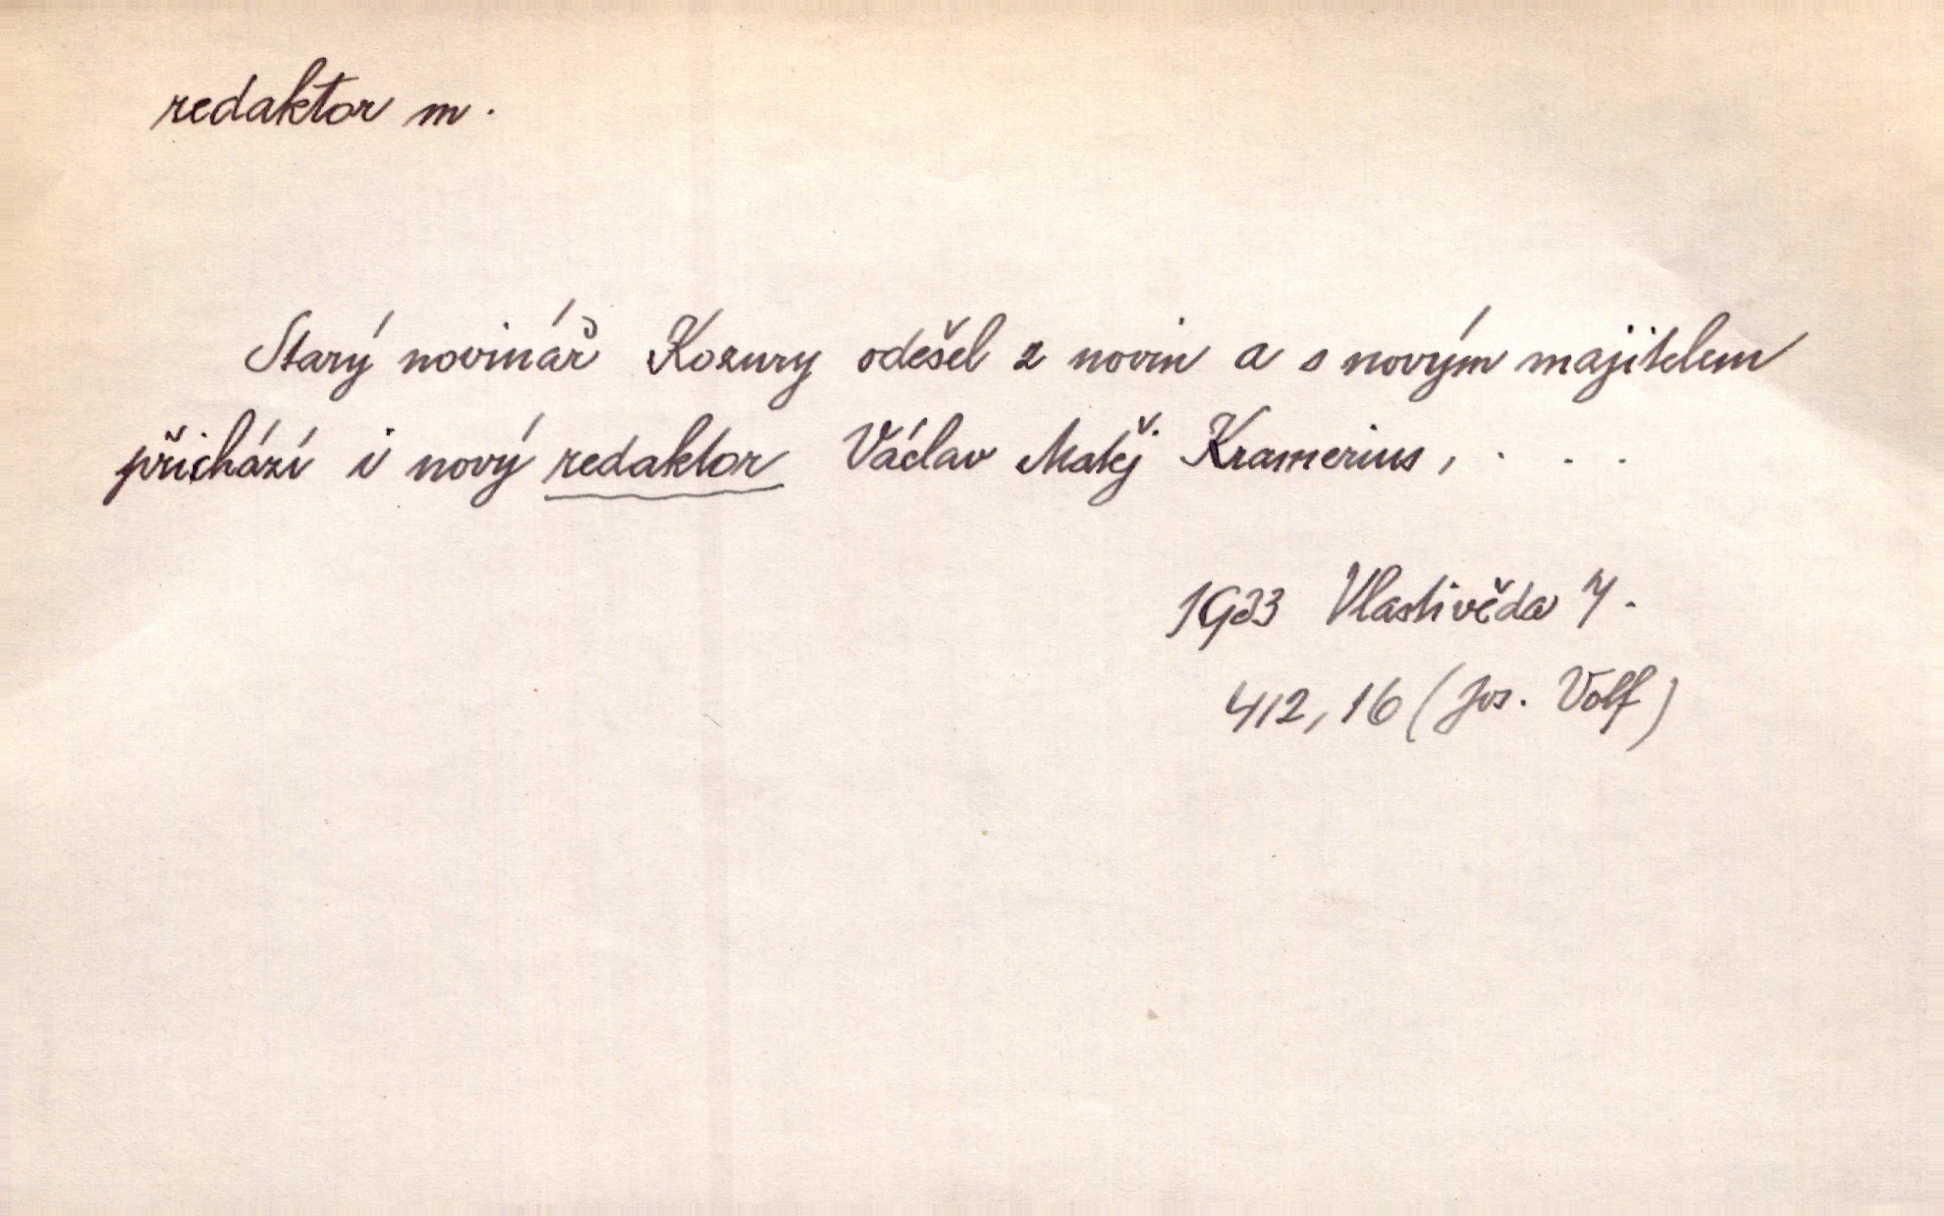 redaktor m.
Starý novinář Kozury odešel z novin a s novým majitelem
přichází i nový redaktor Václav Matěj Kramerius, . . .
1933 Vlastivěda 7.
412, 16 (Jos. Volf)